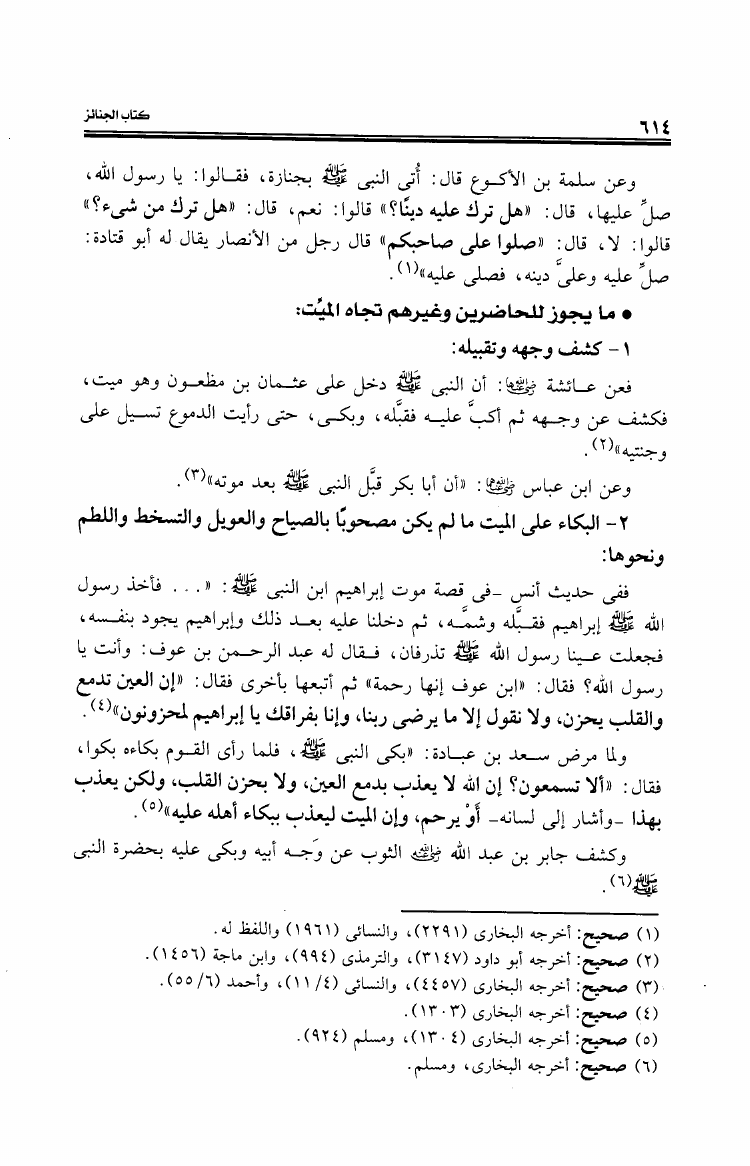 كتاب الجنائز
٦١٤
وعن سلمة بن الأكـوع قال: أُتى النبى ﷺ بجنازة، فقـالوا: يا رسول الله،
صلِّ عليها، قال: «هل ترك عليه دينًا؟» قالوا: نعم، قال: «هل ترك من شىء؟»
قالوا: لا، قال: «صلوا على صاحبكم» قال رجل من الأنصار يقال له أبو قتادة:
صلِّ عليه وعلىَّ دينه، فصلى عليه»(١).
• ما يجوز للحاضرين وغيرهم تجاه الميِّت:
١- كشف وجهه وتقبيله:
فعن عـائشة رضي الله عنها: أن النبى ﷺ دخل على عثـمان بن مظعـون وهو ميت،
فكشف عن وجـهه ثم أكبَّ عليـه فقبَّله، وبكـى، حتى رأيت الدموع تسـيل على
وجنتيه»(٢).
وعن ابن عباس رضي الله عنهما: «أن أبا بكر قبَّل النبى ﷺ بعد موته»(٣).
٢- البكاء على الميت ما لم يكن مصحوبًا بالصياح والعويل والتسخط واللطم
ونحوها:
ففى حديث أنس -فى قصة موت إبراهيم ابن النبى ﷺ: «... فأخذ رسول
الله ﷺ إبراهيم فقـبَّله وشمَّـه، ثم دخلنا عليه بعـد ذلك وإبراهيم يجود بنفـسه،
فجعلت عـينا رسول الله ﷺ تذرفان، فـقال له عبد الرحـمن بن عوف: وأنت يا
رسول الله؟ فقال: «ابن عوف إنها رحمة» ثم أتبعها بأخرى فقال: «إن العين تدمع
والقلب يحزن، ولا نقول إلا ما يرضى ربنا، وإنا بفراقك يا إبراهيم لمحزونون»(٤).
ولما مرض سـعد بن عبـادة: «بكى النبى ﷺ، فلما رأى القـوم بكاءه بكوا،
فقال: «ألا تسمعون؟ إن الله لا يعذب بدمع العين، ولا بحزن القلب، ولكن يعذب
بهذا -وأشار إلى لسانه- أوْ يرحم، وإن الميت ليعذب ببكاء أهله عليه»(٥).
وكشف جابر بن عبد الله رضي الله عنه الثوب عن وَجـه أبيه وبكى عليه بحضرة النبى
ﷺ(٦).
(١) صحيح: أخرجه البخارى (٢٢٩١)، والنسائى (١٩٦١) واللفظ له.
(٢) صحيح: أخرجه أبو داود (٣١٤٧)، والترمذى (٩٩٤)، وابن ماجة (١٤٥٦).
(٣) صحيح: أخرجه البخارى (٤٤٥٧)، والنسائى (١١/٤)، وأحمد (٥٥/٦).
(٤) صحيح: أخرجه البخارى (١٣٠٣).
(٥) صحيح: أخرجه البخارى (١٣٠٤)، ومسلم (٩٢٤).
(٦) صحيح: أخرجه البخارى، ومسلم.